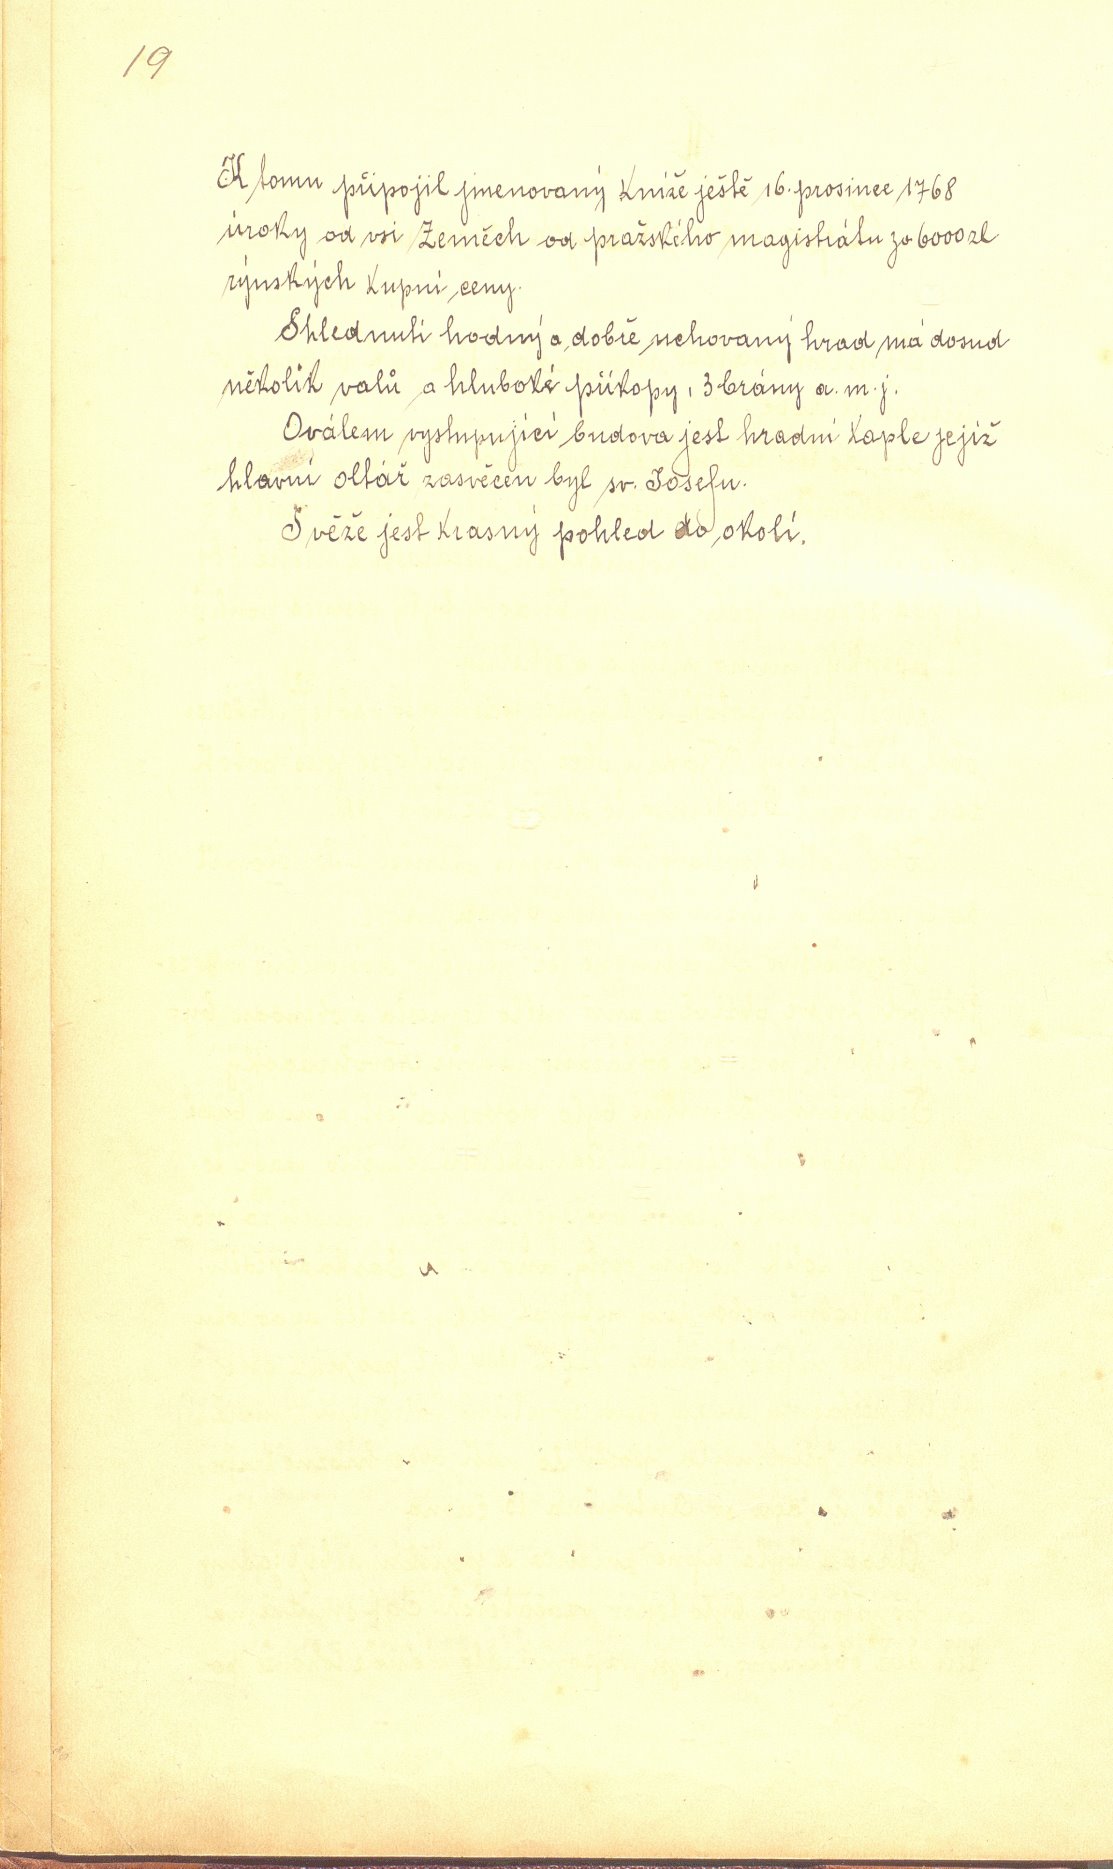 19
K tomu připojil jmenovaný kníže ještě 16. prosince 1768
úroky od vsi Zeměch od pražského magistrátu za 6000 zl
rýnských kupní ceny.
Shlednutí hodný a dobře uchovaný hrad má dosud
několik valů a hluboké příkopy, 3 brány a. m. j.
Oválem vystupující budova jest hradní kaple jejíž
hlavní oltář zasvěcen byl sv. Josefu.
S věže jest krasný pohled do okolí.